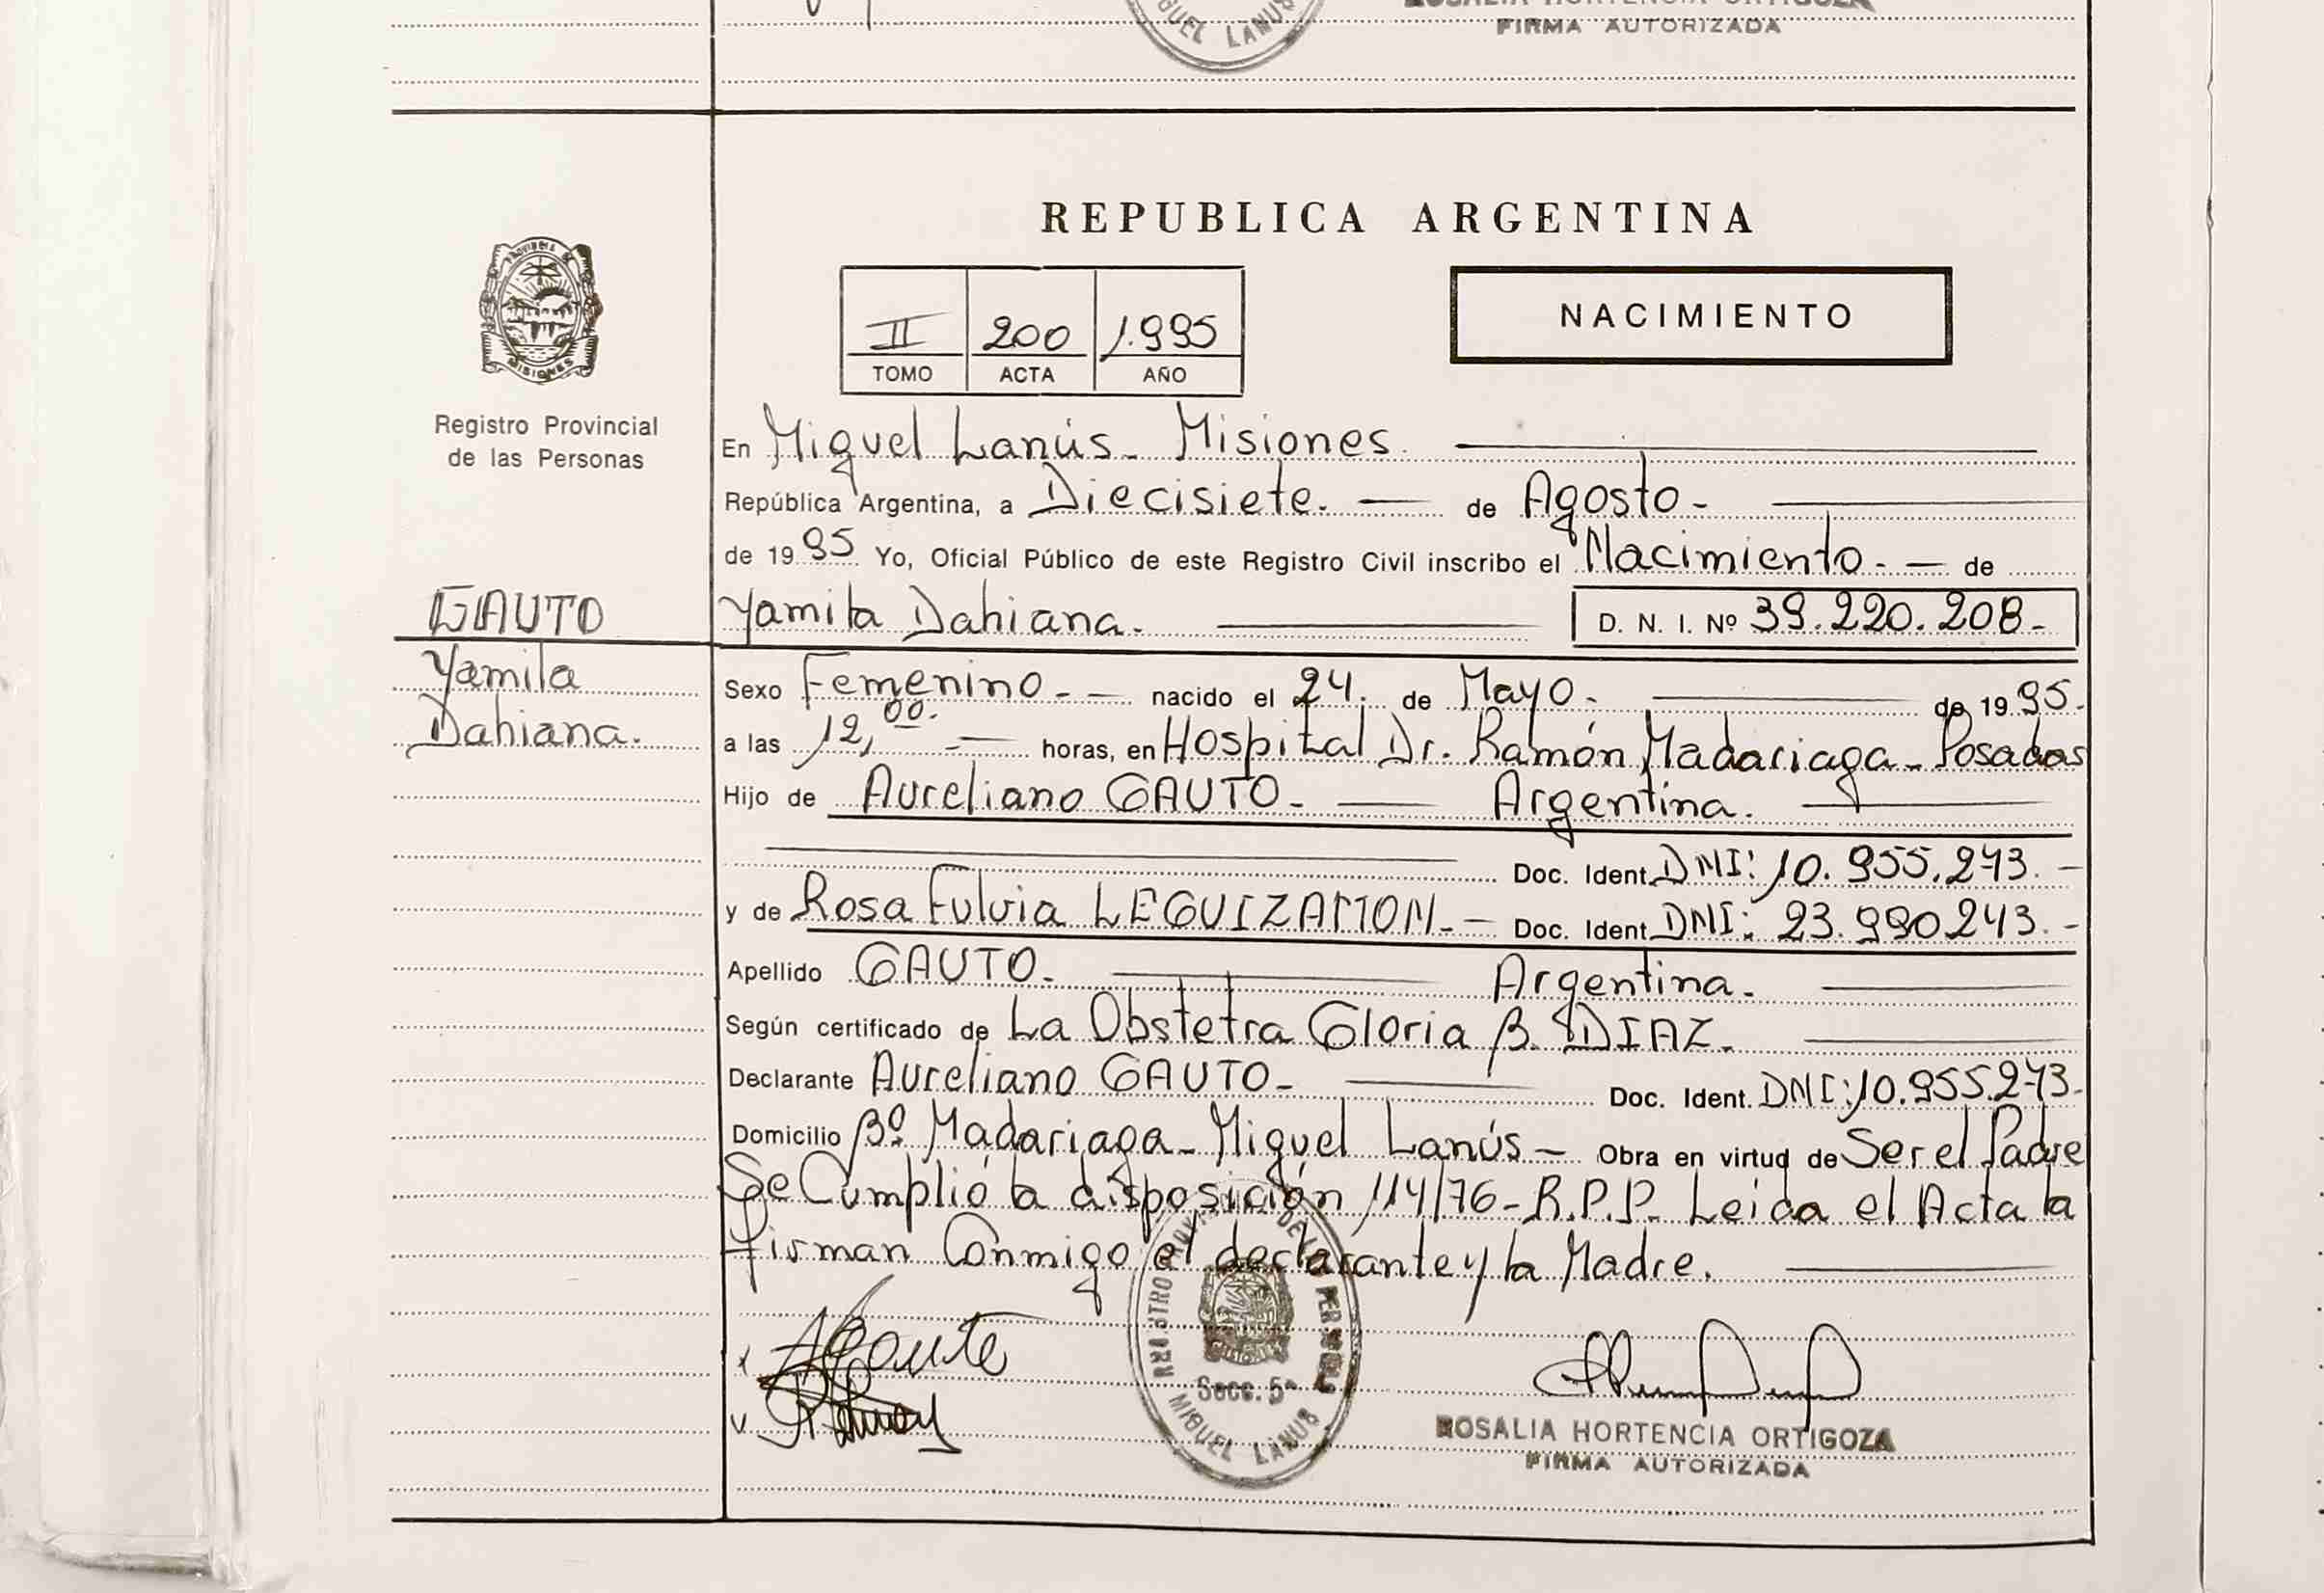 ROSALIA HORTENCIA ORTIGOZA
FIRMA AUTORIZADA
MIGUEL LANUS
REPUBLICA ARGENTINA
II 200 1.995
TOMO ACTA AÑO
NACIMIENTO
PROVINCIA DE MISIONES
Registro Provincial
de las Personas
GAUTO
Yamila
Dahiana.
En Miguel Lanús - Misiones.
República Argentina, a Diecisiete. — de Agosto -
de 1995 Yo, Oficial Público de este Registro Civil inscribo el Nacimiento. - — de
Yamila Dahiana. D. N. I. Nº 39.220.208 -
Sexo Femenino. - — nacido el 24. de Mayo. de 1995.
a las 12,00. — horas, en Hospital Dr. Ramón Madariaga - Posadas
Hijo de Aureliano GAUTO - — Argentina. —
Doc. Ident. DNI: 10.955.273. -
y de Rosa Fulvia LEGUIZAMON. - Doc. Ident. DNI: 23.990243. -
Apellido GAUTO. — Argentina. —
Según certificado de La Obstetra Gloria B. DIAZ. —
Declarante Aureliano GAUTO - — Doc. Ident. DNI: 10.955.273.
Domicilio Bº Madariaga - Miguel Lanús - Obra en virtud de Ser el Padre
Se Cumplió la disposición 114/76 - R.P.P. Leida el Acta la
firman Conmigo el declarante y la Madre. —
AGauto
REGISTRO PROVINCIAL DE LAS PERSONAS
Secc. 5ª
MIGUEL LANUS
ROSALIA HORTENCIA ORTIGOZA
FIRMA AUTORIZADA